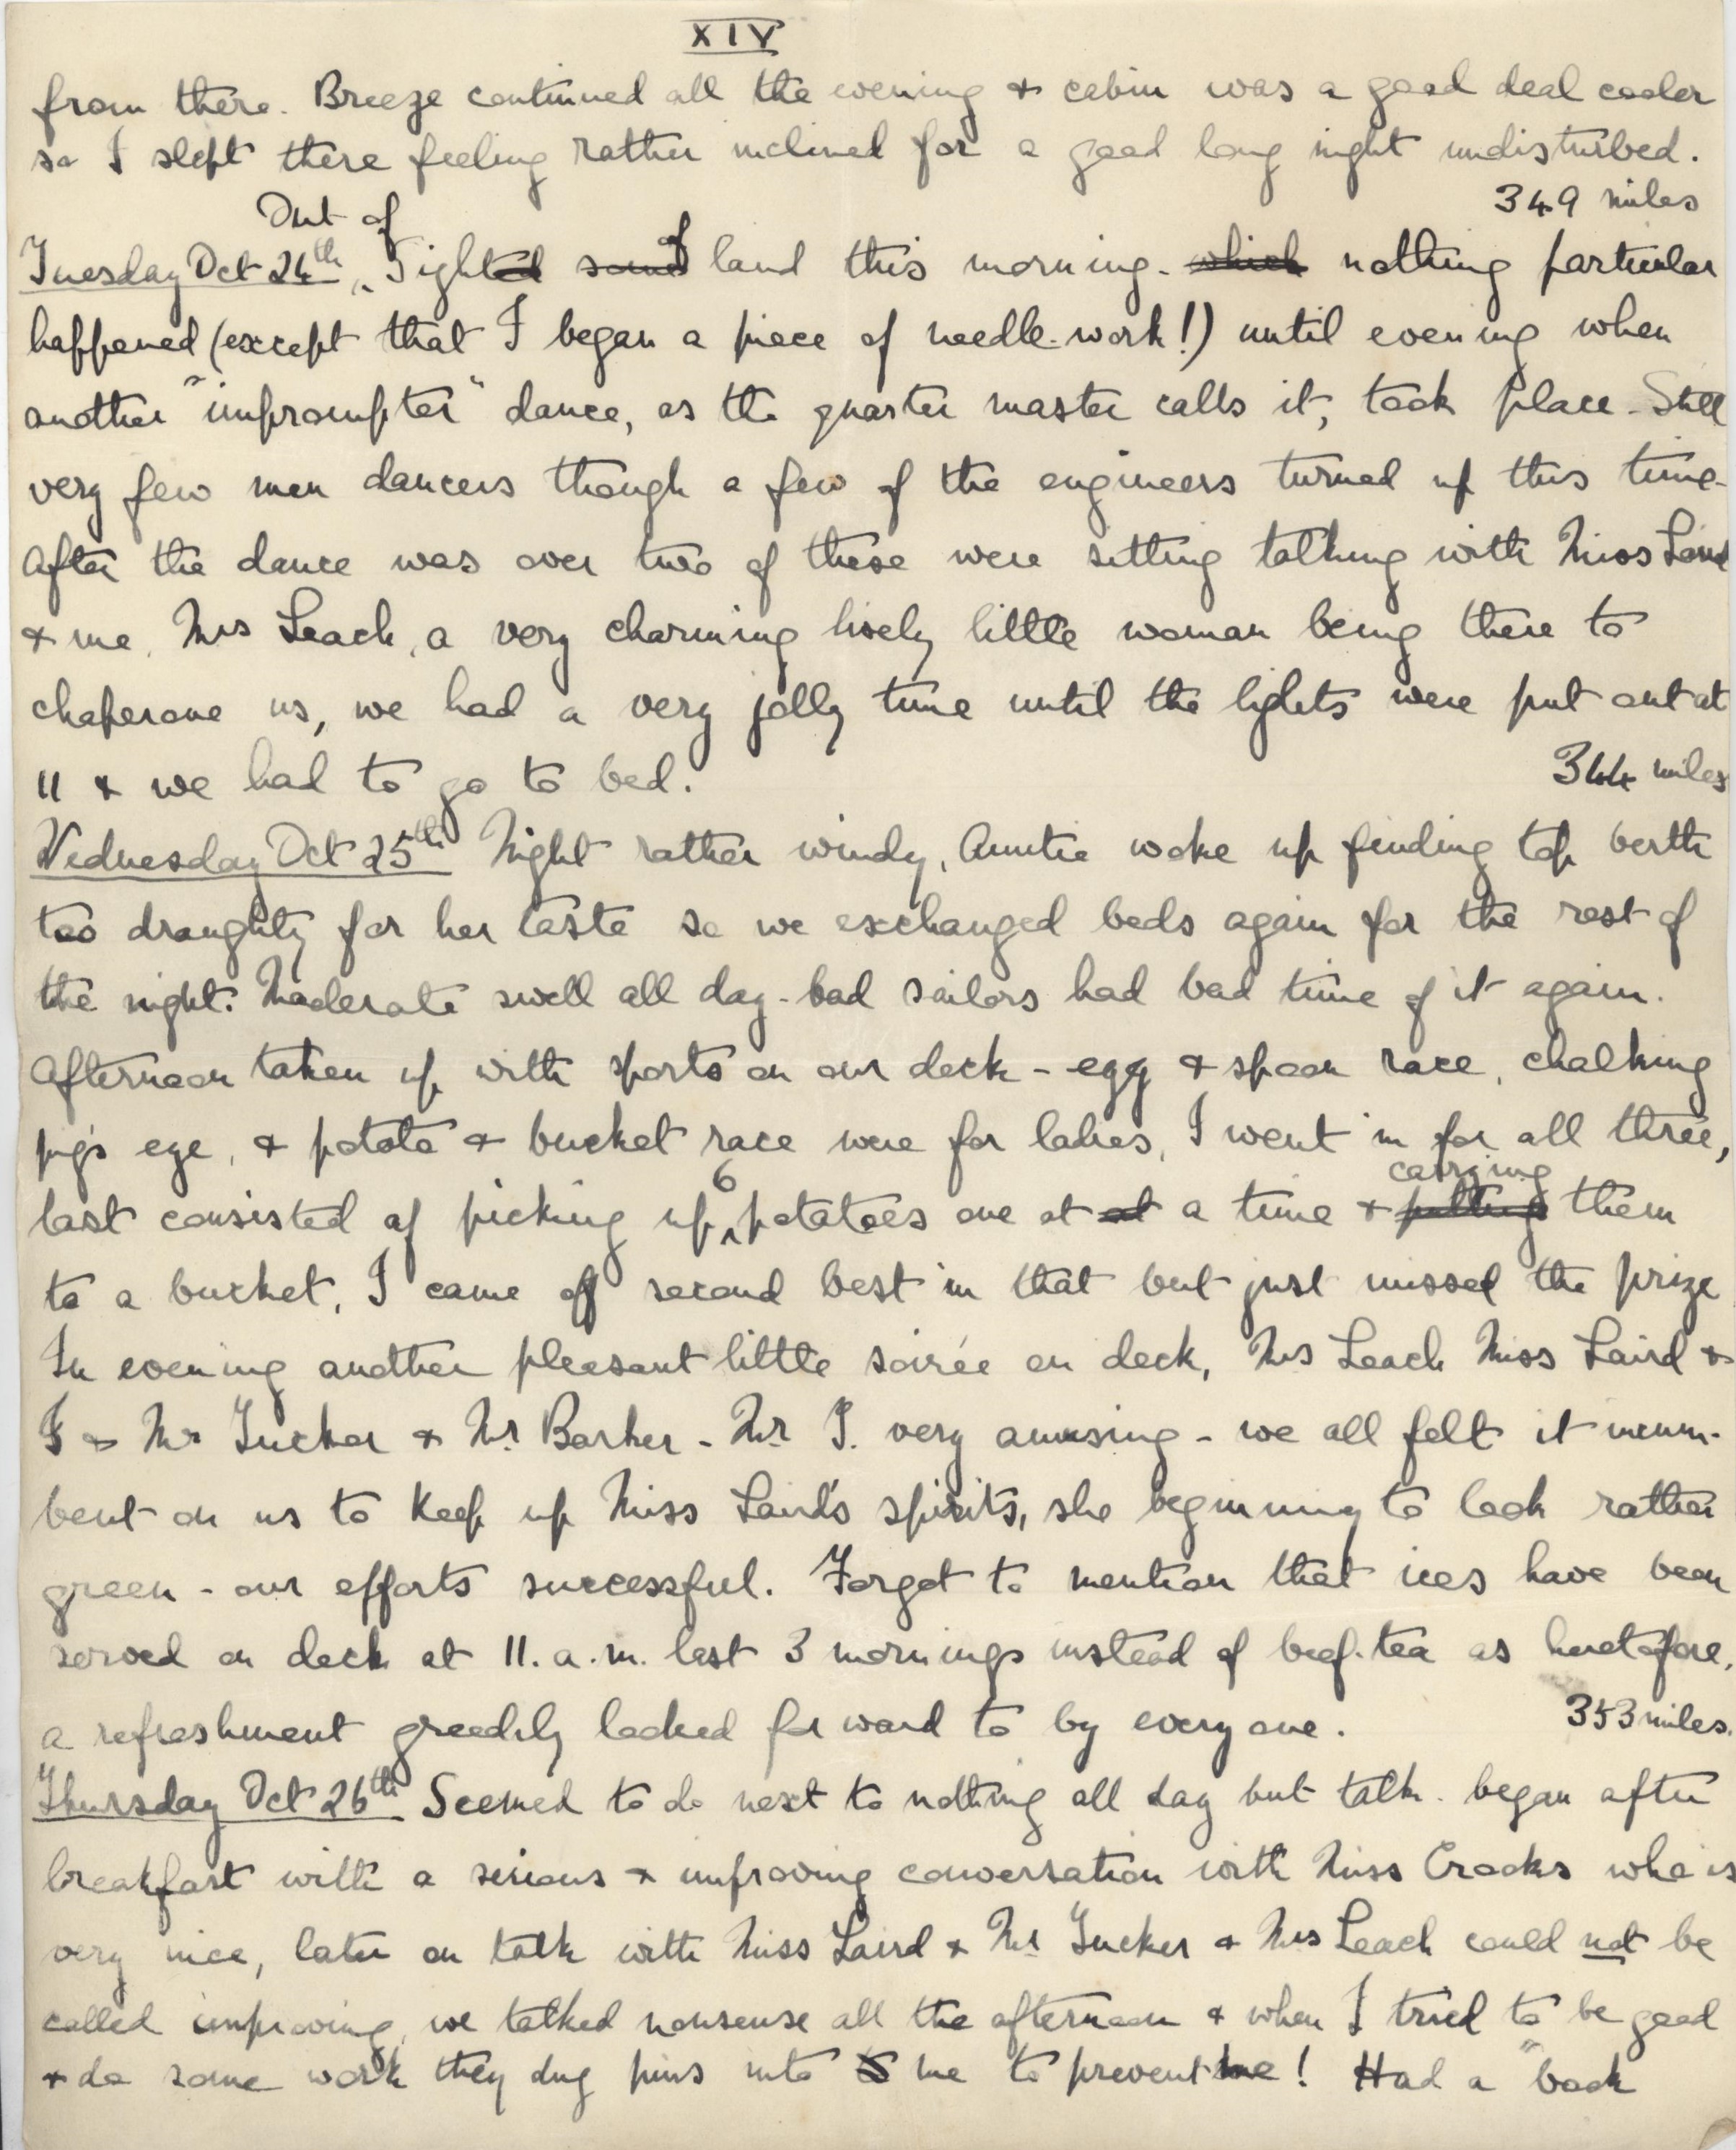 XIV
from there. Breeze continued all the evening & cabin was a good deal cooler
so I slept there feeling rather inclined for a good long night undisturbed.
349 miles
Out of
Tuesday Oct 24th Sighted some of land this morning - which nothing particular
happened (except that I began a piece of needle-work!) until evening when
another "imprompter" dance, as the quarter master calls it, took place - Still
very few men dancers though a few of the engineers turned up this time -
After the dance was over two of these were sitting talking with Miss Laird
& me, Mrs Leach, a very charming lively little woman being there to
chaperone us, we had a very jolly time until the lights were put out at
11 & we had to go to bed.
344 miles
Wednesday Oct 25th Night rather windy, Auntie woke up finding top berth
too draughty for her taste so we exchanged beds again for the rest of
the night. Moderate swell all day - bad sailors had bad time of it again.
Afternoon taken up with sports on our deck - egg & spoon race, chalking
pig's eye, & potato & bucket race were for ladies, I went in for all three,
carrying
last consisted of picking up 6 potatoes one at at a time & putting them
to a bucket, I came off second best in that but just missed the prize
In evening another pleasant little soirée on deck, Mrs Leach Miss Laird &
I & Mr Tucker & Mr Barker - Mr T. very amusing - we all felt it incum-
bent on us to keep up Miss Laird's spirits, she beginning to look rather
green - our efforts successful. Forgot to mention that ices have been
served on deck at 11. a.m. last 3 mornings instead of beef-tea as heretofore,
a refreshment greedily looked forward to by every one.
353 miles.
Thursday Oct 26th Seemed to do next to nothing all day but talk - began after
breakfast with a serious & improving conversation with Miss Crooks who is
very nice, later on talk with Miss Laird & Mr Tucker & Mrs Leach could not be
called improving, we talked nonsense all the afternoon & when I tried to be good
& do some work they dug pins into me to prevent me! Had a "book